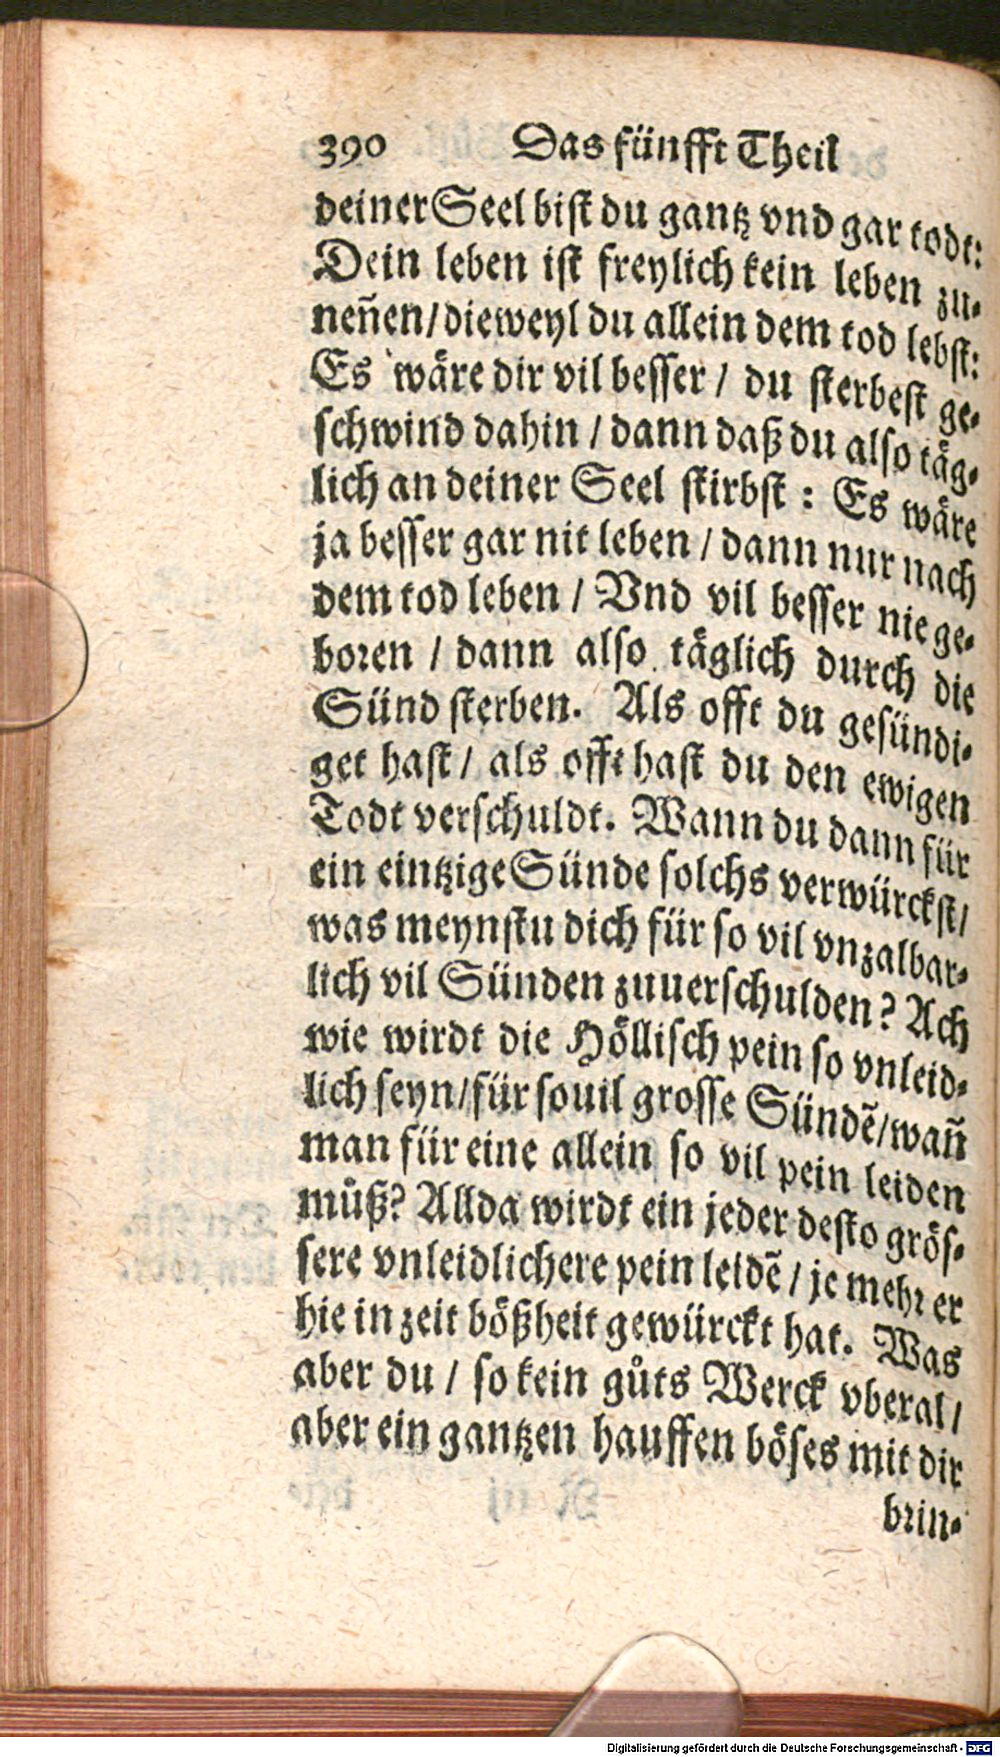 390 Das fünfft Theil
deiner Seel bist du gantz vnd gar todt:
Dein leben ist freylich kein leben zu-
neñen/dieweyl du allein dem tod lebst:
Es wäre dir vil besser / du sterbest ge-
schwind dahin / dann daß du also täg-
lich an deiner Seel stirbst : Es wäre
ja besser gar nit leben / dann nur nach
dem tod leben / Vnd vil besser nie ge-
boren / dann also täglich durch die
Sünd sterben. Als offt du gesündi-
get hast / als offt hast du den ewigen
Todt verschuldt. Wann du dann für
ein eintzige Sünde solchs verwürckst/
was meynstu dich für so vil vnzalbar-
lich vil Sünden zuuerschulden? Ach
wie wirdt die Höllisch pein so vnleid-
lich seyn/für souil grosse Sündẽ/wañ
man für eine allein so vil pein leiden
můß? Allda wirdt ein jeder desto grös-
sere vnleidlichere pein leidẽ / je mehr er
hie in zeit bößheit gewürckt hat. Was
aber du / so kein gůts Werck vberal /
aber ein gantzen hauffen böses mit dir
brin-
Digitalisierung gefördert durch die Deutsche Forschungsgemeinschaft - DFG